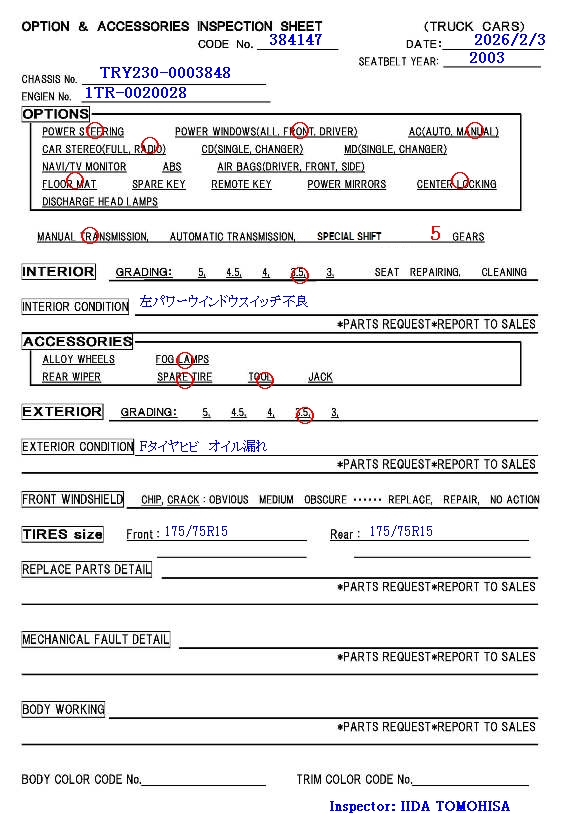 OPTION & ACCESSORIES INSPECTION SHEET (TRUCK CARS)
CODE No. 384147 DATE: 2026/2/3
SEATBELT YEAR: 2003
CHASSIS No. TRY230-0003848
ENGIEN No. 1TR-0020028
OPTIONS
POWER STEERING POWER WINDOWS(ALL, FRONT, DRIVER) AC(AUTO, MANUAL)
CAR STEREO(FULL, RADIO) CD(SINGLE, CHANGER) MD(SINGLE, CHANGER)
NAVI/TV MONITOR ABS AIR BAGS(DRIVER, FRONT, SIDE)
FLOOR MAT SPARE KEY REMOTE KEY POWER MIRRORS CENTER LOCKING
DISCHARGE HEAD LAMPS
MANUAL TRANSMISSION, AUTOMATIC TRANSMISSION, SPECIAL SHIFT 5 GEARS
INTERIOR GRADING: 5, 4.5, 4, 3.5, 3, SEAT REPAIRING, CLEANING
INTERIOR CONDITION 左パワーウインドウスイッチ不良
*PARTS REQUEST*REPORT TO SALES
ACCESSORIES
ALLOY WHEELS FOG LAMPS
REAR WIPER SPARE TIRE TOOL JACK
EXTERIOR GRADING: 5, 4.5, 4, 3.5, 3,
EXTERIOR CONDITION Fタイヤヒビ オイル漏れ
*PARTS REQUEST*REPORT TO SALES
FRONT WINDSHIELD CHIP, CRACK : OBVIOUS MEDIUM OBSCURE ⋯⋯ REPLACE, REPAIR, NO ACTION
TIRES size Front : 175/75R15 Rear : 175/75R15
REPLACE PARTS DETAIL
*PARTS REQUEST*REPORT TO SALES
MECHANICAL FAULT DETAIL
*PARTS REQUEST*REPORT TO SALES
BODY WORKING
*PARTS REQUEST*REPORT TO SALES
BODY COLOR CODE No. TRIM COLOR CODE No.
Inspector: IIDA TOMOHISA